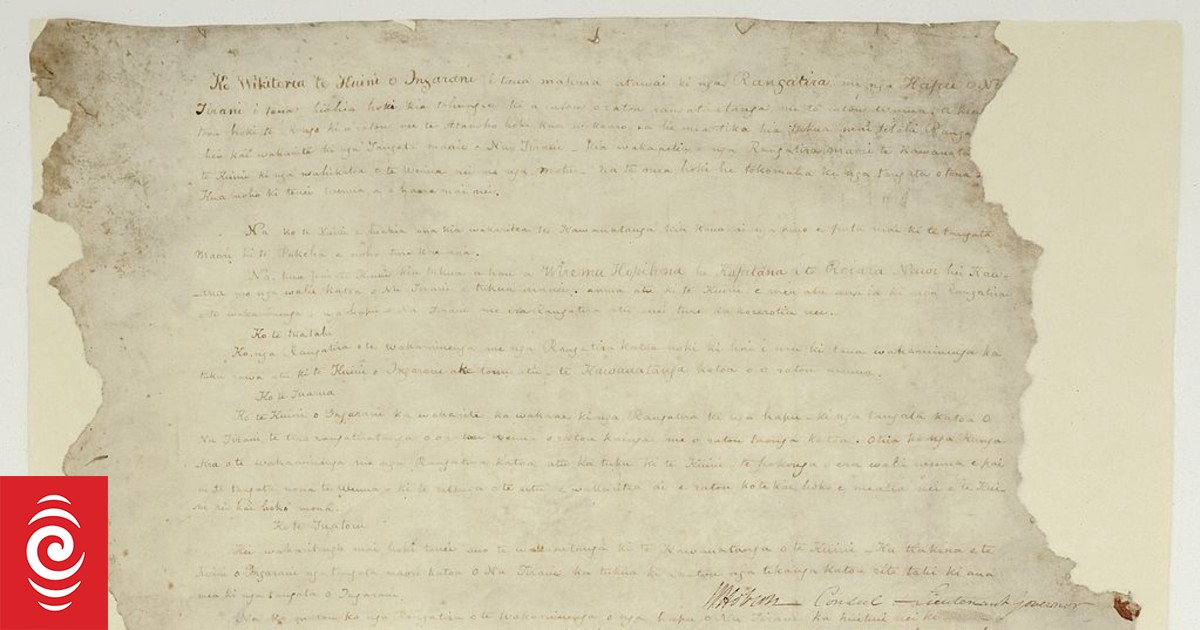 Ko Wikitoria te Kuini o Ingarani i tana mahara atawai ki nga Rangatira me nga Hapu o Nu
Tirani i tana hiahia hoki kia tohungia ki a ratou o ratou rangatiratanga me to ratou wenua, a kia
tonu hoki te Rongo ki a ratou me te Atanoho hoki kua wakaaro ia he mea tika kia tukua mai tetahi Ranga
hei kai wakarite ki nga Tangata maori o Nu Tirani. Kia wakaaetia e nga Rangatira maori te Kawanata
te Kuini ki nga wahikatoa o te Wenua nei me nga Motu. Na te mea hoki he tokomaha ke nga tangata o tona
Kua noho ki tenei wenua, a e haere mai nei.
Na ko te Kuini e hiahia ana kia wakaritea te Kawanatanga kia kaua ai nga kino e puta mai ki te tangata
Maori ki te Pakeha e noho ture kore ana.
Na, kua pai te Kuini kia tukua a hau a Wiremu Hopihona he Kapitana i te Roiara Nawi hei Kawa-
-ana mo nga wahi katoa o Nu Tirani e tukua aianei, amua atu ki te Kuini e mea atu ana ia ki nga Rangatira
o te wakaminenga o nga hapu o Nu Tirani me era Rangatira atu enei ture ka korerotia nei.
Ko te tuatahi
Ko nga Rangatira o te Wakaminenga me nga Rangatira katoa hoki ki hai i uru ki taua wakaminenga ka
tuku rawa atu ki te Kuini o Ingarani ake tonu atu - te Kawanatanga katoa o o ratou wenua.
Ko te Tuarua
Ko te Kuini o Ingarani ka wakarite ka wakaae ki nga Rangatira ki nga hapu - ki nga tangata katoa o
Nu Tirani te tino rangatiratanga o o ratou wenua o ratou kainga me o ratou taonga katoa. Otiia ko nga Ranga
tira o te wakaminenga me nga Rangatira katoa atu ka tuku ki te Kuini te hokonga o era wahi wenua e pai
ai te tangata nona te Wenua - ki te ritenga o te utu e wakaritea ai e ratou ko te kai hoko e meatia nei e te Kui
ni hei kai hoko mona.
Ko te Tuatoru
Hei wakaritenga mai hoki tenei mo te wakaaetanga ki te Kawanatanga o te Kuini - Ka tiakina e te
Kuini o Ingarani nga tangata maori katoa o Nu Tirani ka tukua ki a ratou nga tikanga katoa rite tahi ki ana
mea ki nga tangata o Ingarani.
W Hobson Consul & Lieutenant Governor
Na ko matou ko nga Rangatira o te Wakaminenga o nga hapu o Nu Tirani ka huihui nei ki